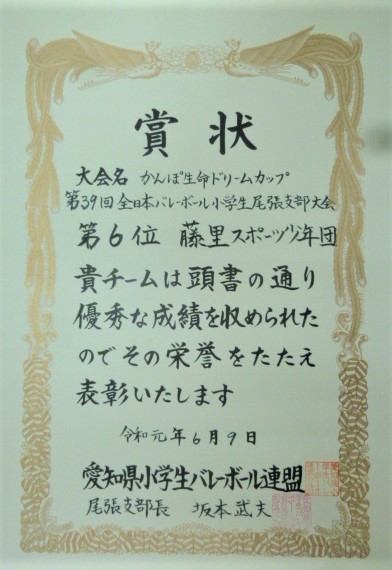 賞状
大会名 かんぽ生命ドリームカップ
第39回全日本バレーボール小学生尾張支部大会
第6位 藤里スポーツ少年団
貴チームは頭書の通り
優秀な成績を収められた
のでその栄誉をたたえ
表彰いたします
令和元年6月9日
愛知県小学生バレーボール連盟
尾張支部長 坂本武夫